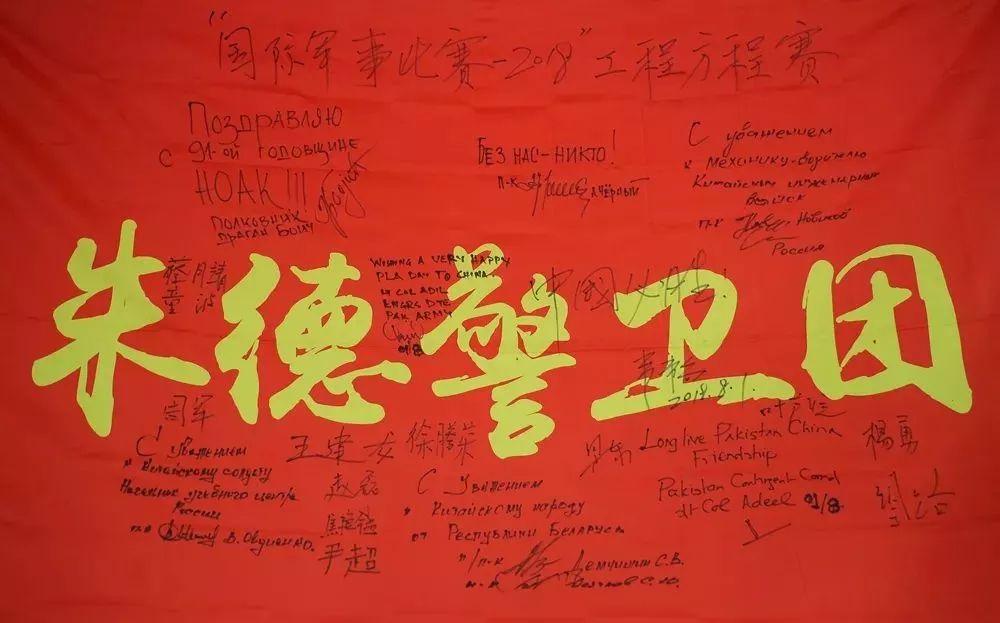 "国际军事比赛-2018"工程方程赛
Поздравляю
с 91-ой годовщине
НОАК !!!
полковник
Драган
Без нас - никто!
п-к
А Чёрный
С уважением
к механику-водителю
Китайских инженерных
войск
п-к Новиков
Россия
蔡
董
Wishing a very happy
PLA Day to China
Lt Col Adil
Engrs Dte
Pak Army
01/8
中國必胜!
朱德警卫团
2018.8.1.
闫军
王建龙
徐腾荣
赵磊
尹超
С уважением
к Китайскому солдату
Начальник учебного центра
России
п-к
С уважением
к Китайскому народу
от Республики Беларусь
п/п-к
Демчишин С.В.
Long live Pakistan China
Friendship
Pakistan Contingent Comd
Lt Col Adeel 01/8
楊勇